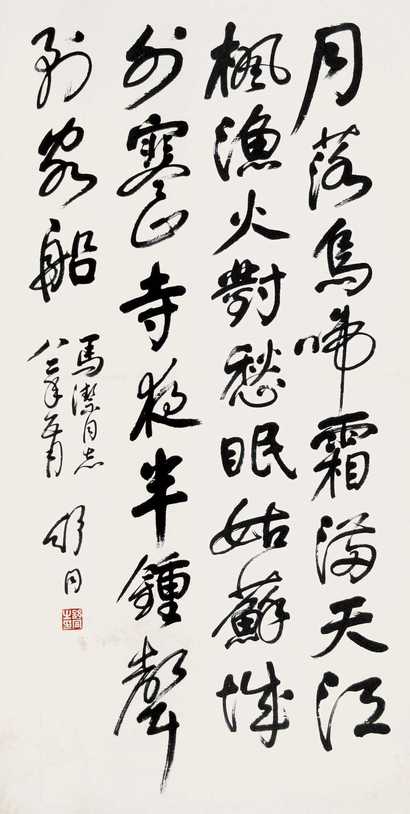 月落烏啼霜滿天江
楓漁火對愁眠姑蘇城
外寒山寺夜半鍾聲
到客船
馬潔同志
八二年五月
舒同